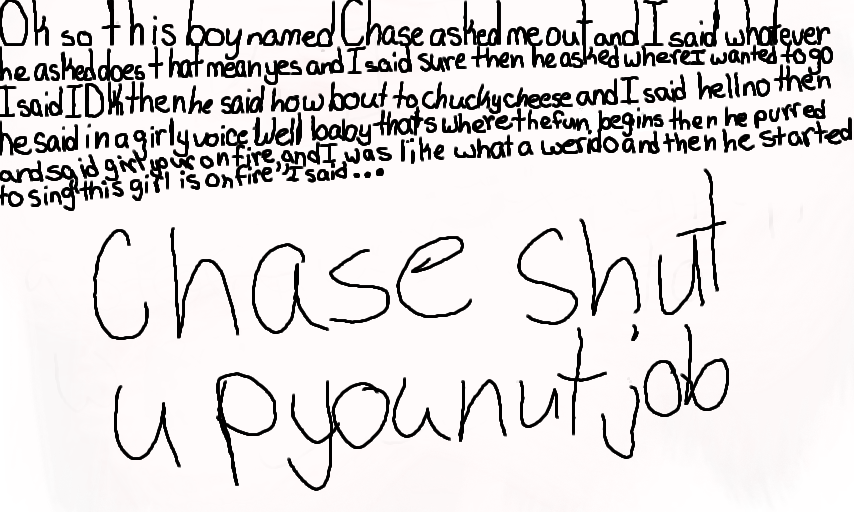 Ok so this boy named Chase asked me out and I said whatever
he asked does that mean yes and I said sure then he asked where I wanted to go
I said IDK then he said how bout to chucky cheese and I said hell no then
he said in a girly voice Well baby that's where the fun begins then he purred
and said girl your on fire, and I was like what a werido and then he started
to sing "this girl is on fire," I said...
Chase shut
up you nut job